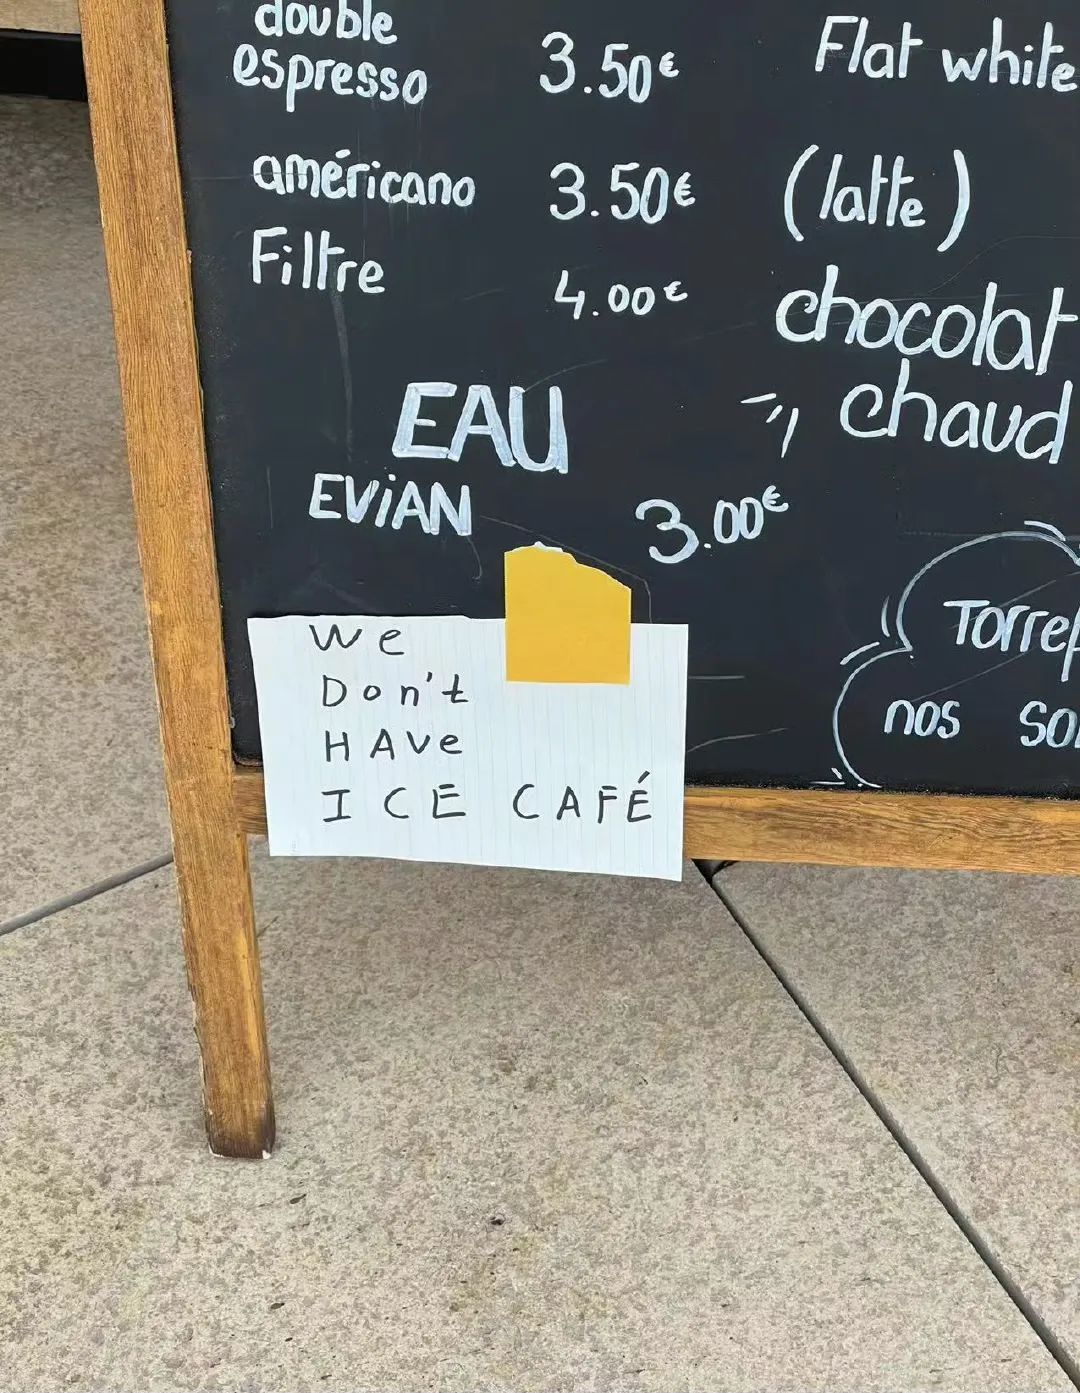 double
espresso 3.50€
américano 3.50€
Filtre 4.00€
EAU
EViAN 3.00€
Flat white
(latte)
chocolat
chaud
nos
We
Don't
HAVe
ICE CAFÉ